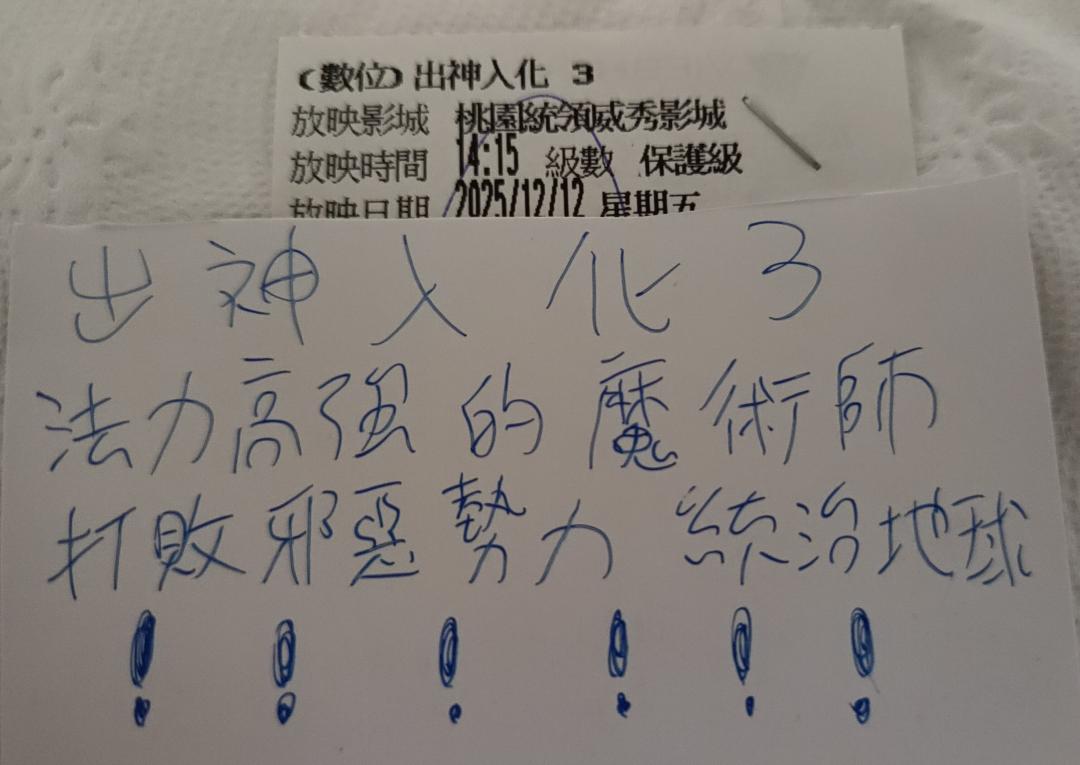 (數位) 出神入化 3
放映影城 桃園統領威秀影城
放映時間 14:15 級數 保護級
放映日期 2025/12/12 星期五
出神入化3
法力高強的魔術師
打敗邪惡勢力 統治地球
!!!!!!